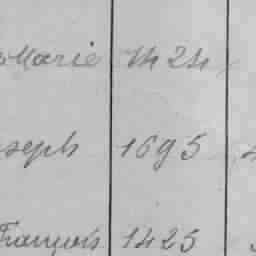 Marie
oseph 1695
François 1425